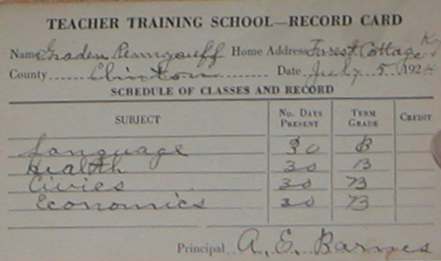 TEACHER TRAINING SCHOOL—RECORD CARD
Name Graden Home Address Forest Cottage Ky
County Clinton Date July 5 192
SCHEDULE OF CLASSES AND RECORD
SUBJECT No. DAYS PRESENT TERM GRADE CREDIT
Language 30 B
Health 30 B
Civics 30 B
Economics 30 B
Principal A. E. Barnes